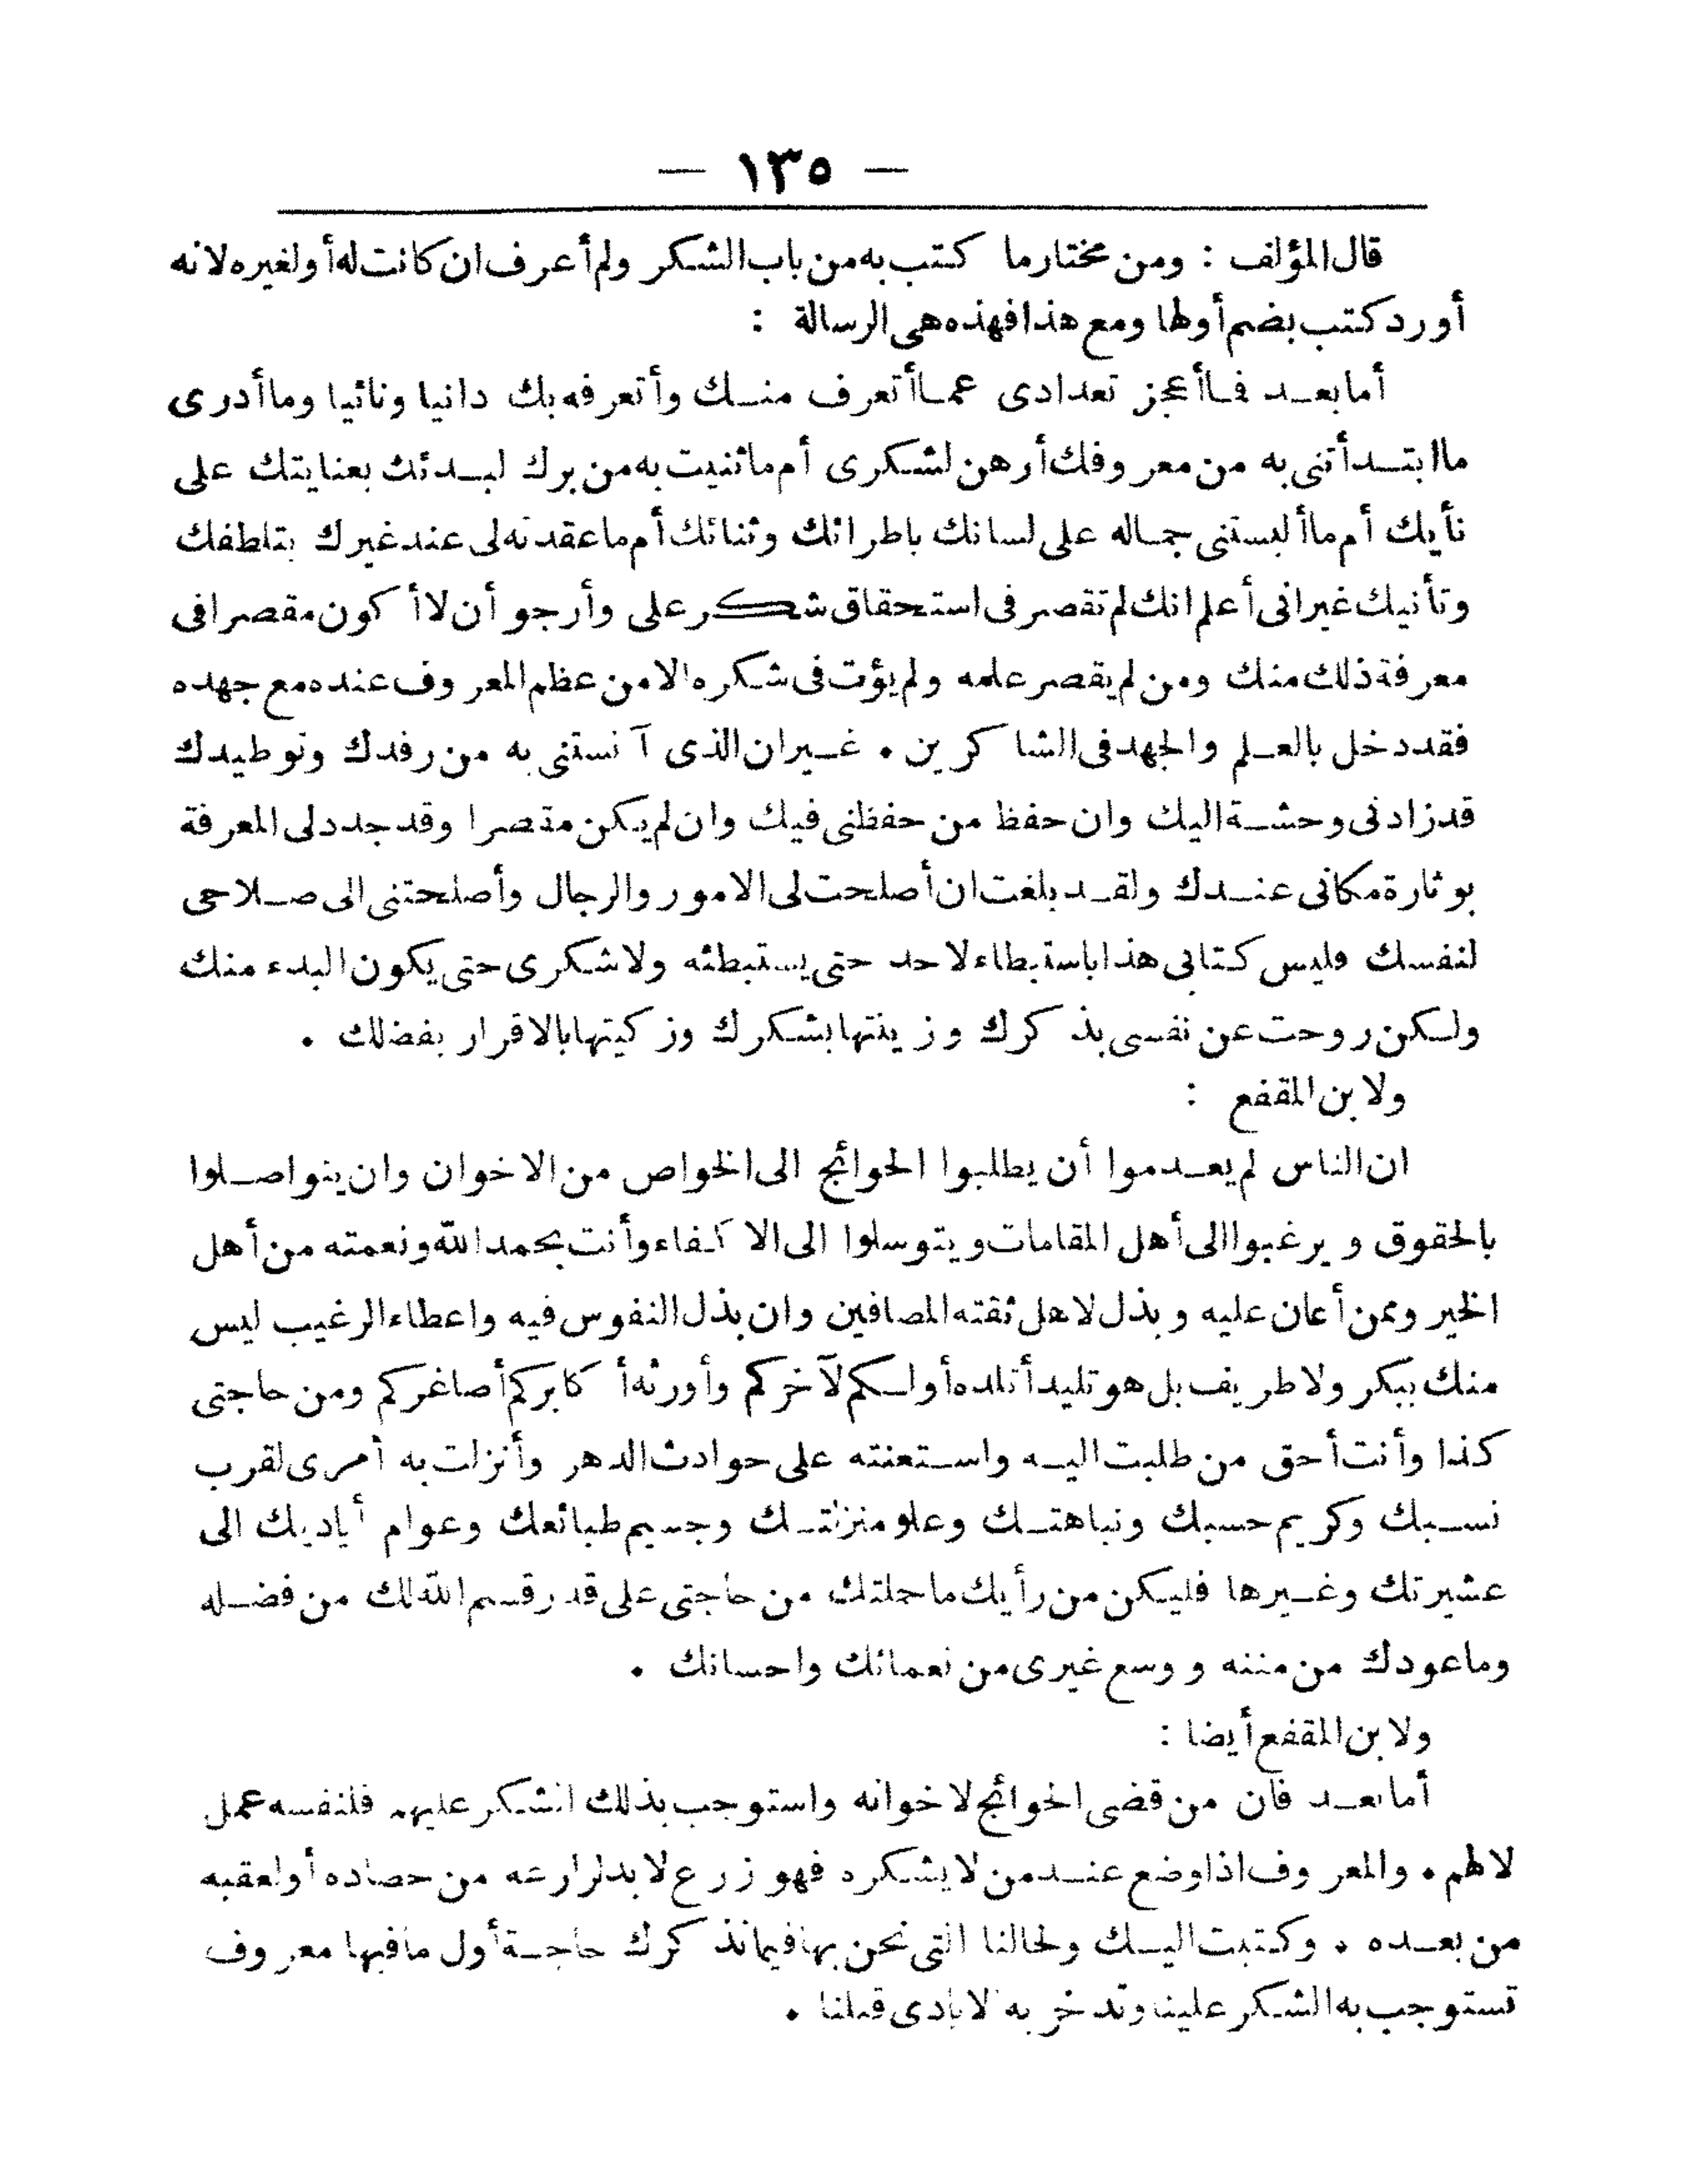 — ١٣٥ —
قال المؤلف : ومن مختار ما كتب به من باب الشكر ولم أعرف ان كانت له أو لغيره لانه
أورد كتب بضم أولها ومع هذا فهذه هى الرسالة :
أما بعد فما أعجز تعدادى عما أتعرف منك وأتعرفه بك دانيا ونائيا وما أدرى
ما ابتدأتنى به من معروفك أرهن لشكرى أم ما ثنيت به من برك لبدئك بعنايتك على
نأيك أم ما ألبستنى جماله على لسانك باطرائك وثنائك أم ما عقدته لى عند غيرك بتلطفك
وتأنيك غير انى أعلم انك لم تقصر فى استحقاق شكر على وأرجو أن لا أكون مقصرا فى
معرفة ذلك منك ومن لم يقصر علمه ولم يؤت فى شكره الا من عظم المعروف عنده مع جهده
فقد دخل بالعلم والجهد فى الشاكرين . غير ان الذى آنستنى به من رفدك وتوطيدك
قد زادنى وحشة اليك وان حفظ من حفظنى فيك وان لم يكن مقصرا وقد جدد لى المعرفة
بوثارة مكانى عندك ولقد بلغت ان أصلحت لى الامور والرجال وأصلحتنى الى صلاحى
لنفسك فليس كتابى هذا باستبطاء لاحد حتى يستبطئه ولا شكرى حتى يكون البدء منك
ولكن روحت عن نفسى بذكرك وزينتها بشكرك وزكيتها بالاقرار بفضلك .
ولابن المقفع :
ان الناس لم يعدموا أن يطلبوا الحوائج الى الخواص من الاخوان وان يتواصلوا
بالحقوق ويرغبوا الى أهل المقامات ويتوسلوا الى الاكفاء وأنت بحمد الله ونعمته من أهل
الخير وممن أعان عليه وبذل لاهل ثقته المصافين وان بذل النفوس فيه واعطاء الرغيب ليس
منك ببكر ولا طريف بل هو تليد أتلده أولكم لآخركم وأورثه أكابركم أصاغركم ومن حاجتى
كذا وأنت أحق من طلبت اليه واستعنته على حوادث الدهر وأنزلت به أمرى لقرب
نسبك وكريم حسبك ونباهتك وعلو منزلتك وجسيم طبائعك وعوام أياديك الى
عشيرتك وغيرها فليكن من رأيك ما حملتك من حاجتى على قدر قسم الله لك من فضله
وما عودك من مننه ووسع غيرى من نعمائك واحسانك .
ولابن المقفع أيضا :
أما بعد فان من قضى الحوائج لاخوانه واستوجب بذلك الشكر عليهم فلنفسه عمل
لا لهم . والمعروف اذا وضع عند من لا يشكره فهو زرع لا بد لزارعه من حصاده أو لعقبه
من بعده . وكتبت اليك ولحالنا التى نحن بها فيما نذكرك حاجة أول ما فيها معروف
تستوجب به الشكر علينا وتدخر به الايادى قبلنا .